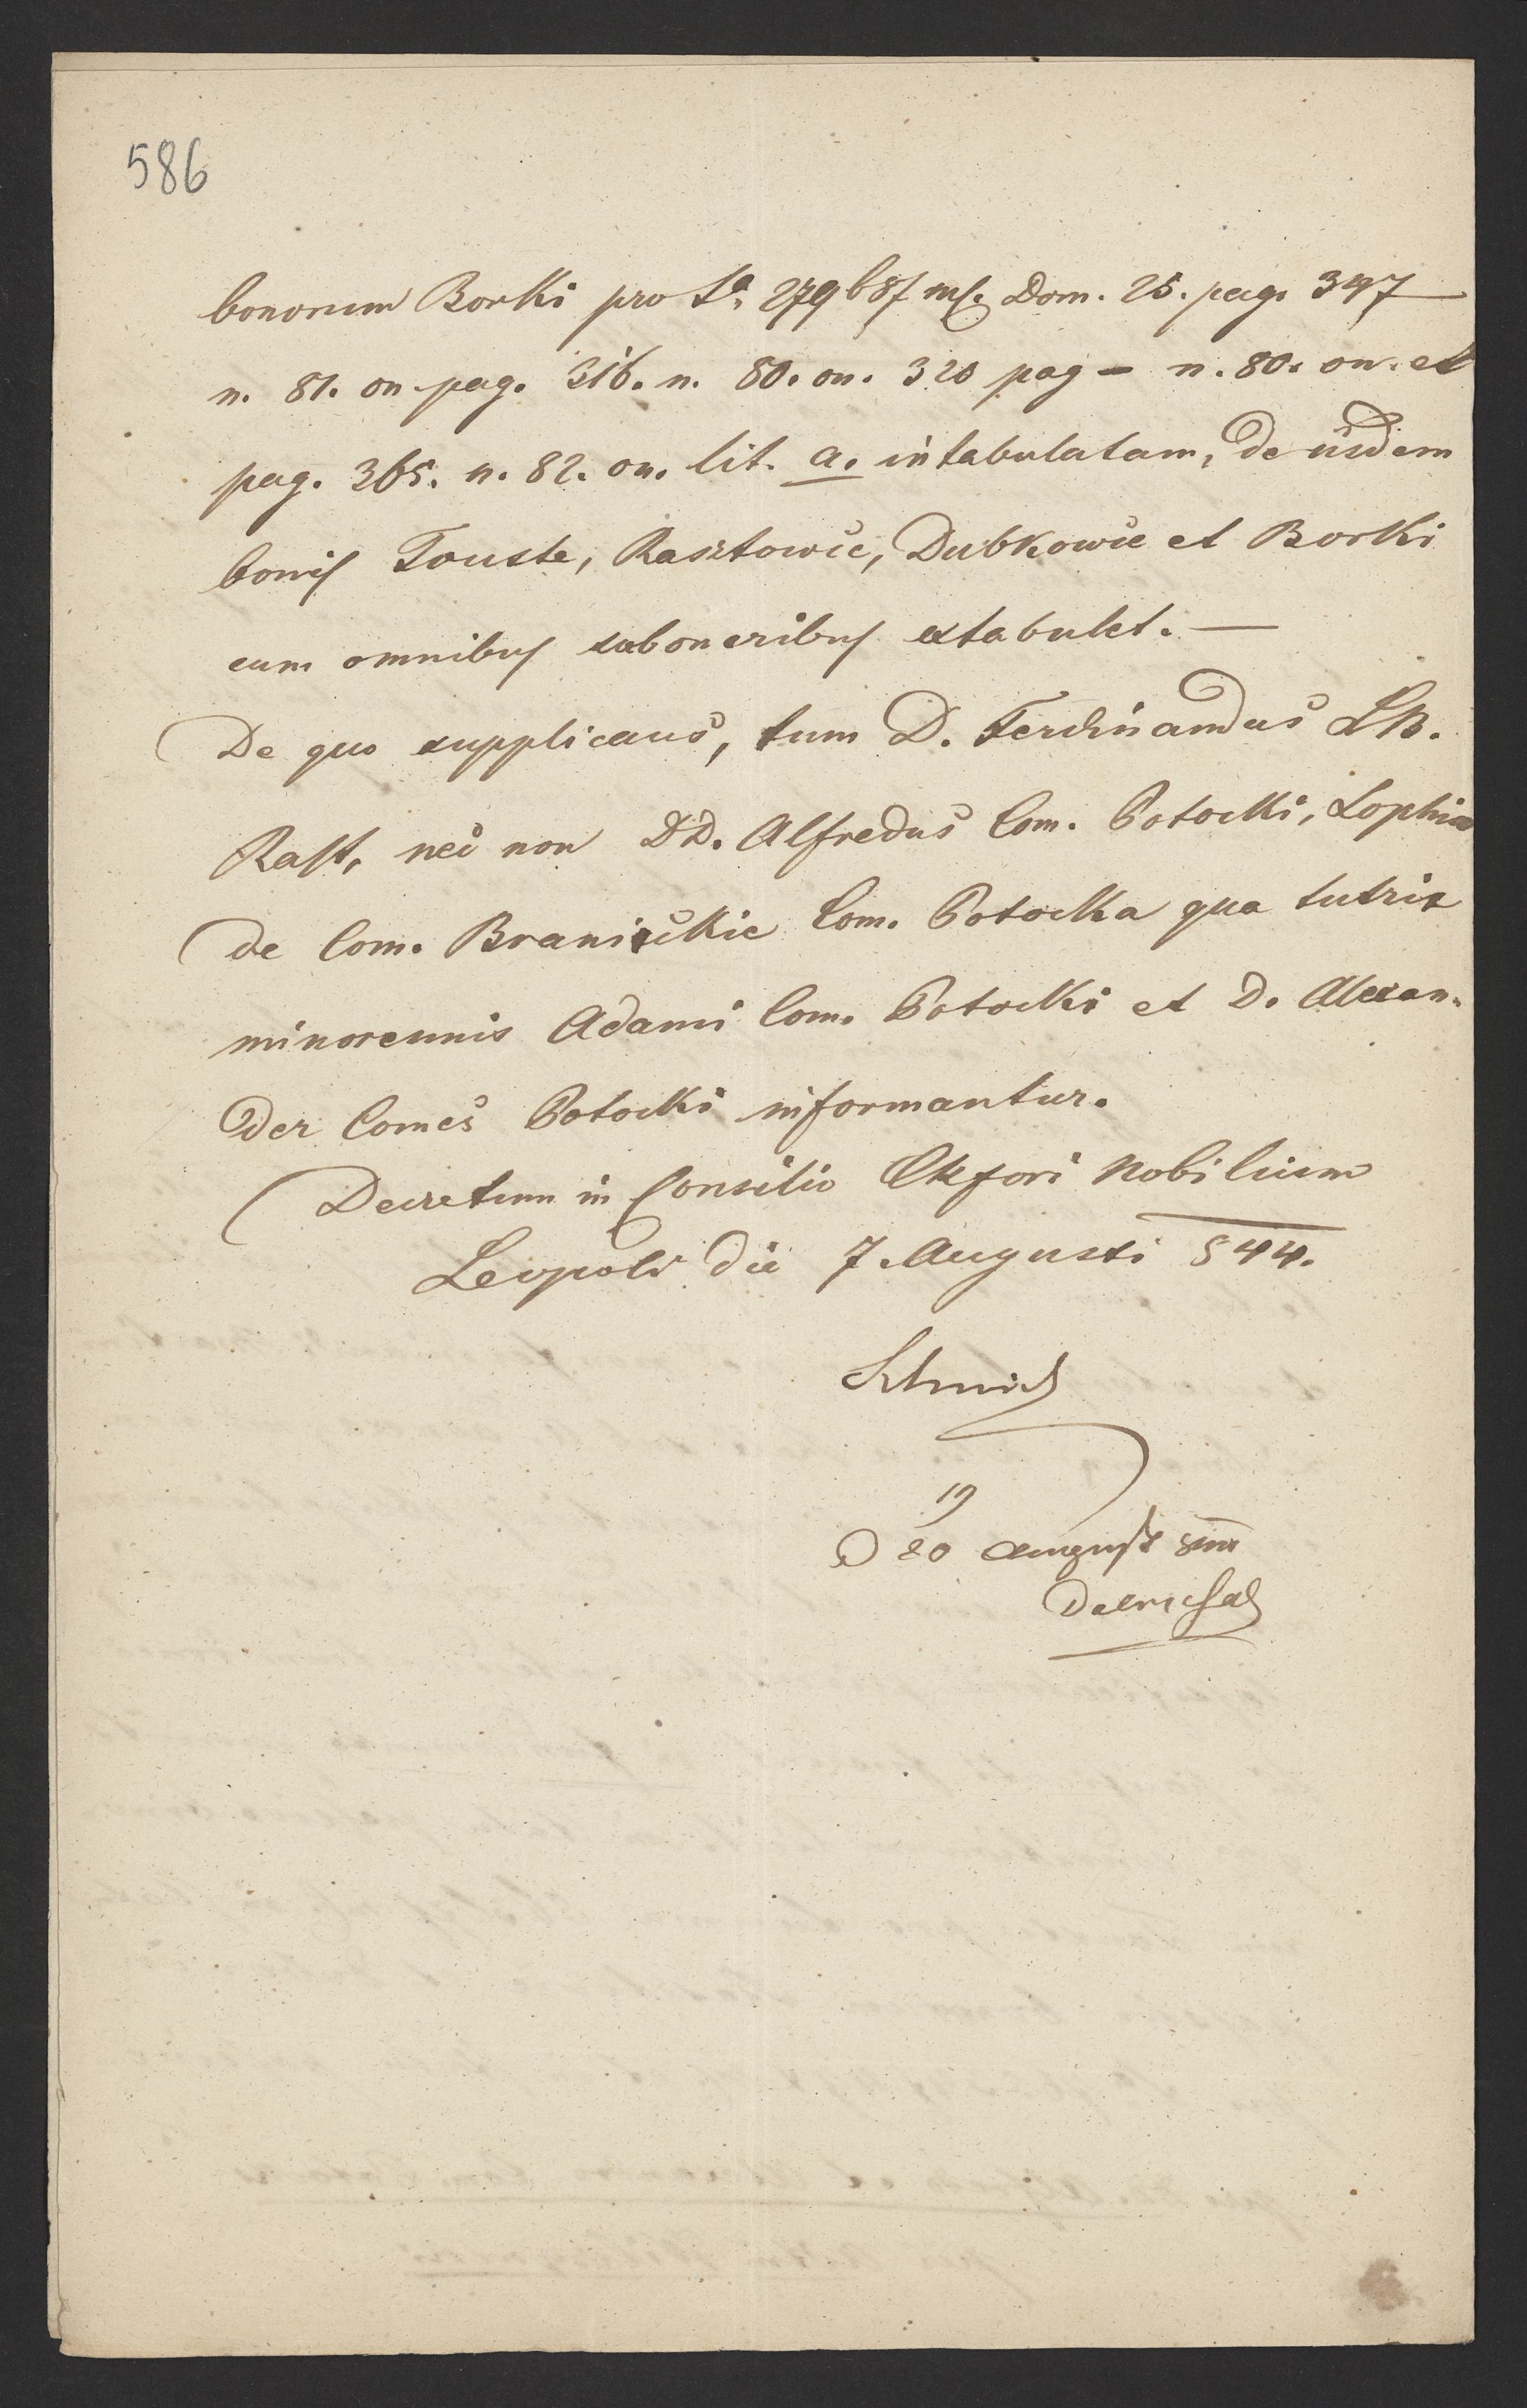 586
bonorum Borki pro Sa. 279 b 8f mf. Dom. 25. pag. 347
n. 81. on pag. 316. n. 80. on. 320 pag – n. 80. on. et
pag. 365. n. 82. on. lit. a. intabulatam, de iisdem
bonis Touste, Rasztowce, Dubkowce et Borki
cum omnibus suboneribus extabulet. —
De quo supplicans, tum D. Ferdinandus LB.
Rast, nec non DD. Alfredus Com. Potocki, Sophia
de Com. Branickie Com. Potocka qua tutrix
minorennis Adami Com. Potocki et D. Alexan-
der Comes Potocki informantur.
Decretum in Consilio Ckfori Nobilium
Leopoli die 7. Augusti 844.
Schmid
19
D 20 August